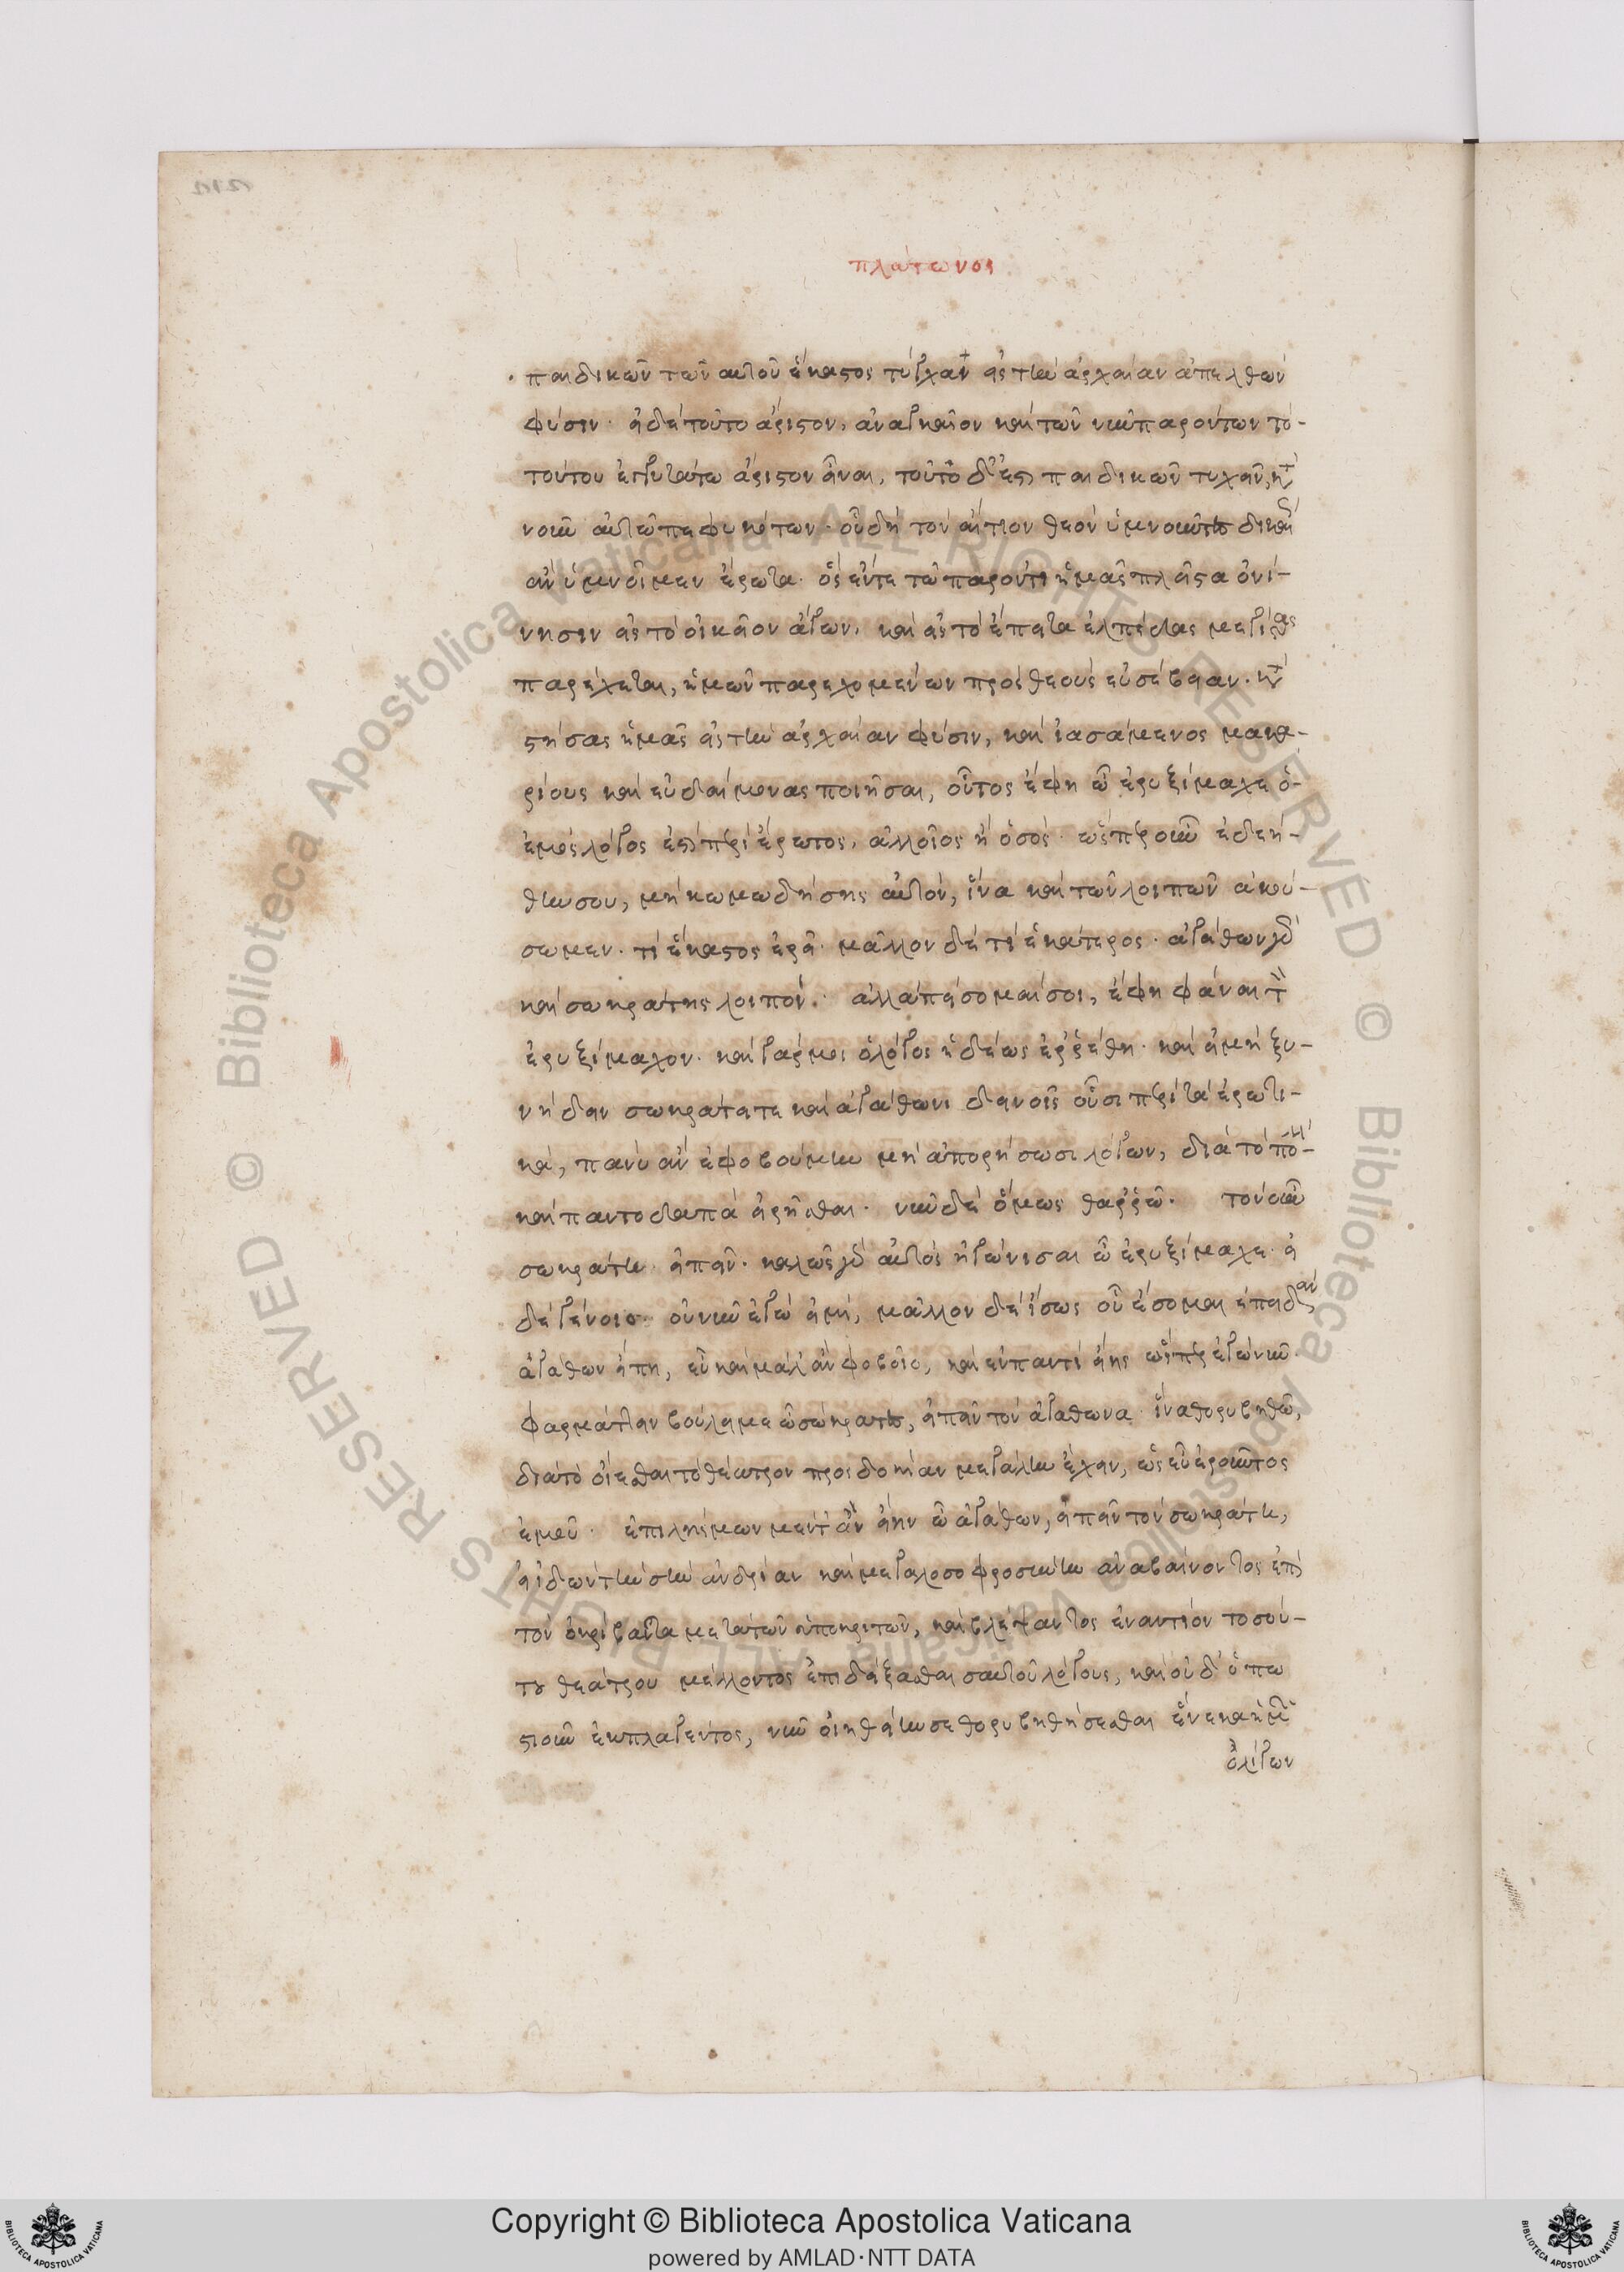 πλάτωνος
παιδικῶν τῶν αὐτοῦ ἕκαστος τυγχάνῃ εἰς τὴν ἀρχαίαν ἀπελθὼν
φύσιν. εἰ δὲ τοῦτο ἄριστον, ἀναγκαῖον καὶ τῶν νῦν παρόντων τὸ-
τούτου ἐγγυτάτω ἄριστον εἶναι, τοῦτο δ' ἐστὶ παιδικῶν τυχεῖν, κατὰ
νοῦν αὐτῶ πεφυκότων. οὗ δὴ τὸν αἴτιον θεὸν ὑμνοῦντες δικαίως
ἂν ὑμνοῖμεν ἔρωτα. ὃς ἔν τε τῶ παρόντι ἡμᾶς πλεῖστα ὀνί-
νησιν εἰς τὸ οἰκεῖον ἄγων, καὶ εἰς τὸ ἔπειτα ἐλπίδας μεγίστας
παρέχεται, ἡμῶν παρεχομένων πρὸς θεοὺς εὐσέβειαν. κατα
στήσας ἡμᾶς εἰς τὴν ἀρχαίαν φύσιν, καὶ ἰασάμενος μακα-
ρίους καὶ εὐδαίμονας ποιῆσαι, οὗτος ἔφη ὦ ἐρυξίμαχε ὁ-
ἐμὸς λόγος ἐστὶ περὶ ἔρωτος, ἀλλοῖος ἢ ὁ σός. ὥσπερ οὖν ἐδεή-
θην σου, μὴ κωμωδήσῃς αὐτόν, ἵνα καὶ τῶν λοιπῶν ἀκού-
σωμεν. τί ἕκαστος ἐρεῖ. μᾶλλον δὲ τί ἑκάτερος. ἀγάθων γὰρ
καὶ σωκράτης λοιποί. ἀλλὰ πείσομαί σοι, ἔφη φάναι τὸν
ἐρυξίμαχον. καὶ γάρ μοι ὁ λόγος ἡδέως ἐρρέθη. καὶ εἰ μὴ ξυ-
νῄδειν σωκράτει τε καὶ ἀγάθωνι δεινοῖς οὖσι περὶ τὰ ἐρωτι-
κά, πάνυ ἂν ἐφοβούμην μὴ ἀπορήσωσι λόγων, διὰ τὸ πολλὰ-
καὶ παντοδαπὰ εἰρῆσθαι. νῦν δὲ ὅμως θαρρῶ. τὸν οὖν
σωκράτη εἰπεῖν. καλῶς γὰρ αὐτὸς ἠγώνισαι ὦ ἐρυξίμαχε. εἰ
δὲ γένοιο οὗ νῦν ἐγώ εἰμι, μᾶλλον δὲ ἴσως οὗ ἔσομαι ἐπειδὰν
ἀγάθων εἴπῃ, εὖ καὶ μάλ' ἂν φοβοῖο, καὶ ἐν παντὶ εἴης ὥσπερ ἐγὼ νῦν.
φαρμάττειν βούλει με ὦ σώκρατες, εἰπεῖν τὸν ἀγάθωνα. ἵνα θορυβηθῶ,
διὰ τὸ οἴεσθαι τὸ θέατρον προσδοκίαν μεγάλην ἔχειν, ὡς εὖ ἐροῦντος
ἐμοῦ. ἐπιλήσμων μέντ' ἂν εἴην ὦ ἀγάθων, εἰπεῖν τὸν σωκράτη,
εἰ ἰδὼν τὴν σὴν ἀνδρίαν καὶ μεγαλοφροσύνην ἀναβαίνοντος ἐπὶ
τὸν ὀκρίβαντα μετὰ τῶν ὑποκριτῶν, καὶ βλέψαντος ἐναντίον τοσού-
του θεάτρου μέλλοντος ἐπιδείξασθαι σαυτοῦ λόγους, καὶ οὐδ' ὁπω
στιοῦν ἐκπλαγέντος, νῦν οἰηθείην σε θορυβηθήσεσθαι ἕνεκα ἡμῶν
ὀλίγων
Copyright © Biblioteca Apostolica Vaticana
powered by AMLAD·NTT DATA